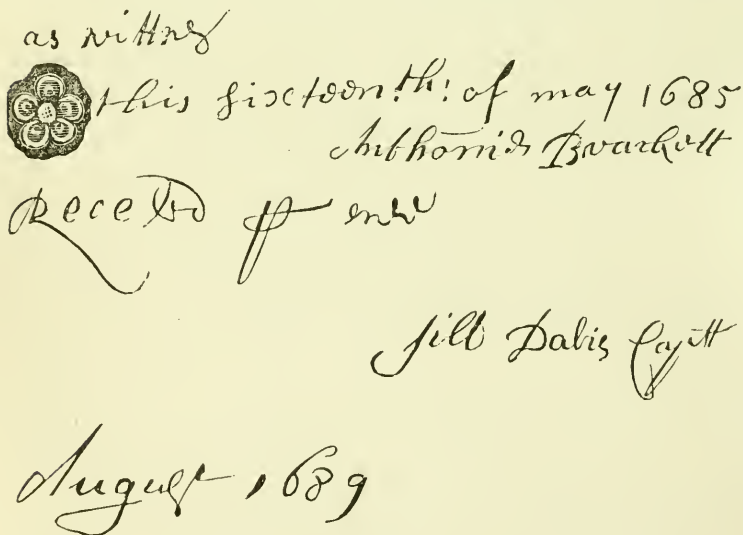 as wittnes
this sixteen:th: of may 1685
Anthonie Brackett
Receved p me
Silv Davis Capt
August 1689